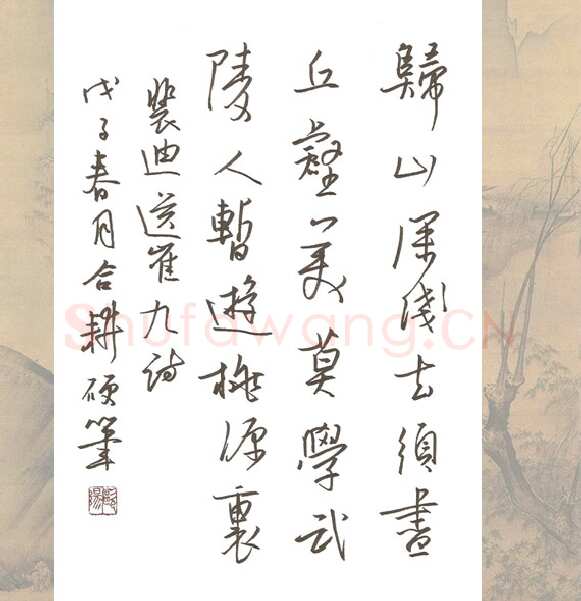 歸山深淺去須盡
丘壑美莫學武
陵人暫遊桃源裏
裴迪送崔九詩
戊子春月合耕硬筆
Shufawang.CN